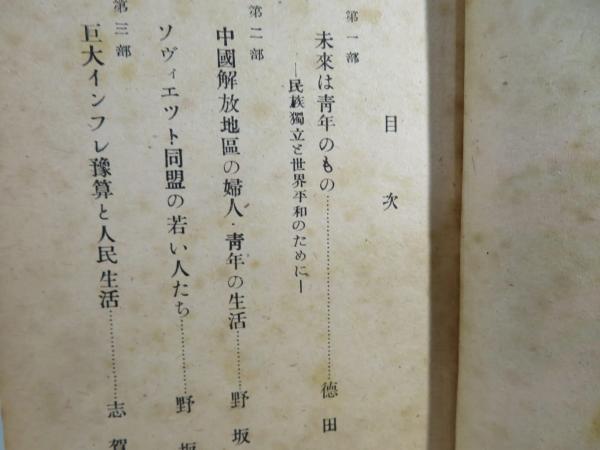 目次
第一部
未來は靑年のもの……………………德田
―民族獨立と世界平和のために―
第二部
中國解放地區の婦人・靑年の生活…………野坂
ソヴィエット同盟の若い人たち…………野坂
第三部
巨大インフレ豫算と人民生活…………志賀